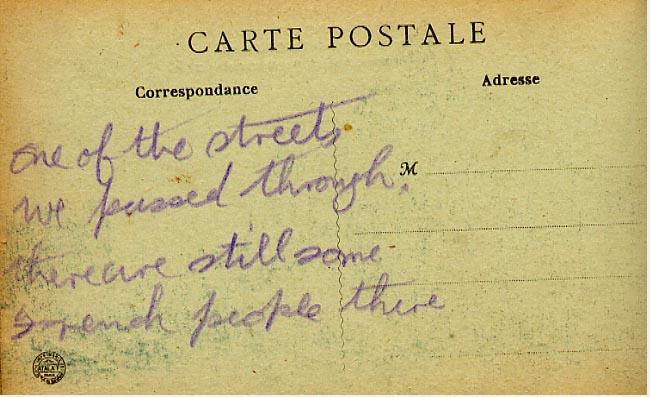 CARTE POSTALE
Correspondance
Adresse
M
one of the streets
we passed through.
there are still some
French people there